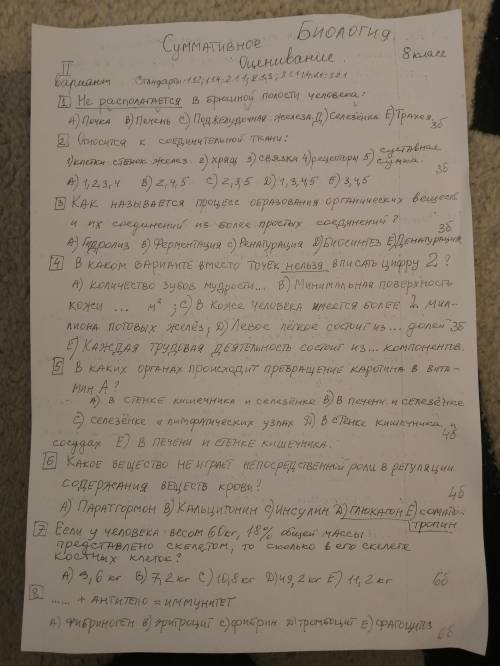 Биология
Суммативное
Оценивание. 8 класс
II
вариант Стандарты:
1 Не располагается в брюшной полости человека:
А) Почка В) Печень С) Поджелудочная железа Д) Селезёнка Е) Трахея 3б
2 Относится к соединительной ткани:
1) клетки стенок желез. 2) хрящ 3) связки 4) рецепторы 5) суставная сумка.
А) 1,2,3,4 В) 2,4,5 С) 2,3,5 Д) 1,3,4,5 Е) 3,4,5 3б
3 Как называется процесс образования органических веществ
и их соединений из более простых соединений?
А) Гидролиз В) Ферментация С) Ренатурация Д) Биосинтез Е) Денатурация 3б
4 В каком варианте вместо точек нельзя вписать цифру 2?
А) Количество зубов мудрости... В) Минимальная поверхность
кожи ... м²; С) В коже человека имеется более 2 мил-
лиона потовых желёз; Д) Левое лёгкое состоит из... долей 3б
Е) Каждая трудовая деятельность состоит из... компонентов.
5 В каких органах происходит превращение каротина в вита-
мин А?
А) В стенке кишечника и селезёнке В) В печени и селезёнке
С) селезёнке и лимфатических узлах Д) В стенке кишечника и
сосудах Е) В печени и стенке кишечника. 4б
6 Какое вещество не играет непосредственной роли в регуляции
содержания веществ крови? 4б
А) Паратгормон В) Кальцитонин С) Инсулин Д) Глюкагон Е) Сомато-
тропин
7 Если у человека весом 60кг, 18% общей массы
представлено скелетом, то сколько в его скелете
костных клеток?
А) 3,6 кг В) 7,2 кг С) 10,8 кг Д) 49,2 кг Е) 11,2 кг 6б
8 ...... + антитело = иммунитет
А) Фибриноген В) Эритроцит С) Фибрин Д) Тромбоцит Е) Фагоцитоз 6б